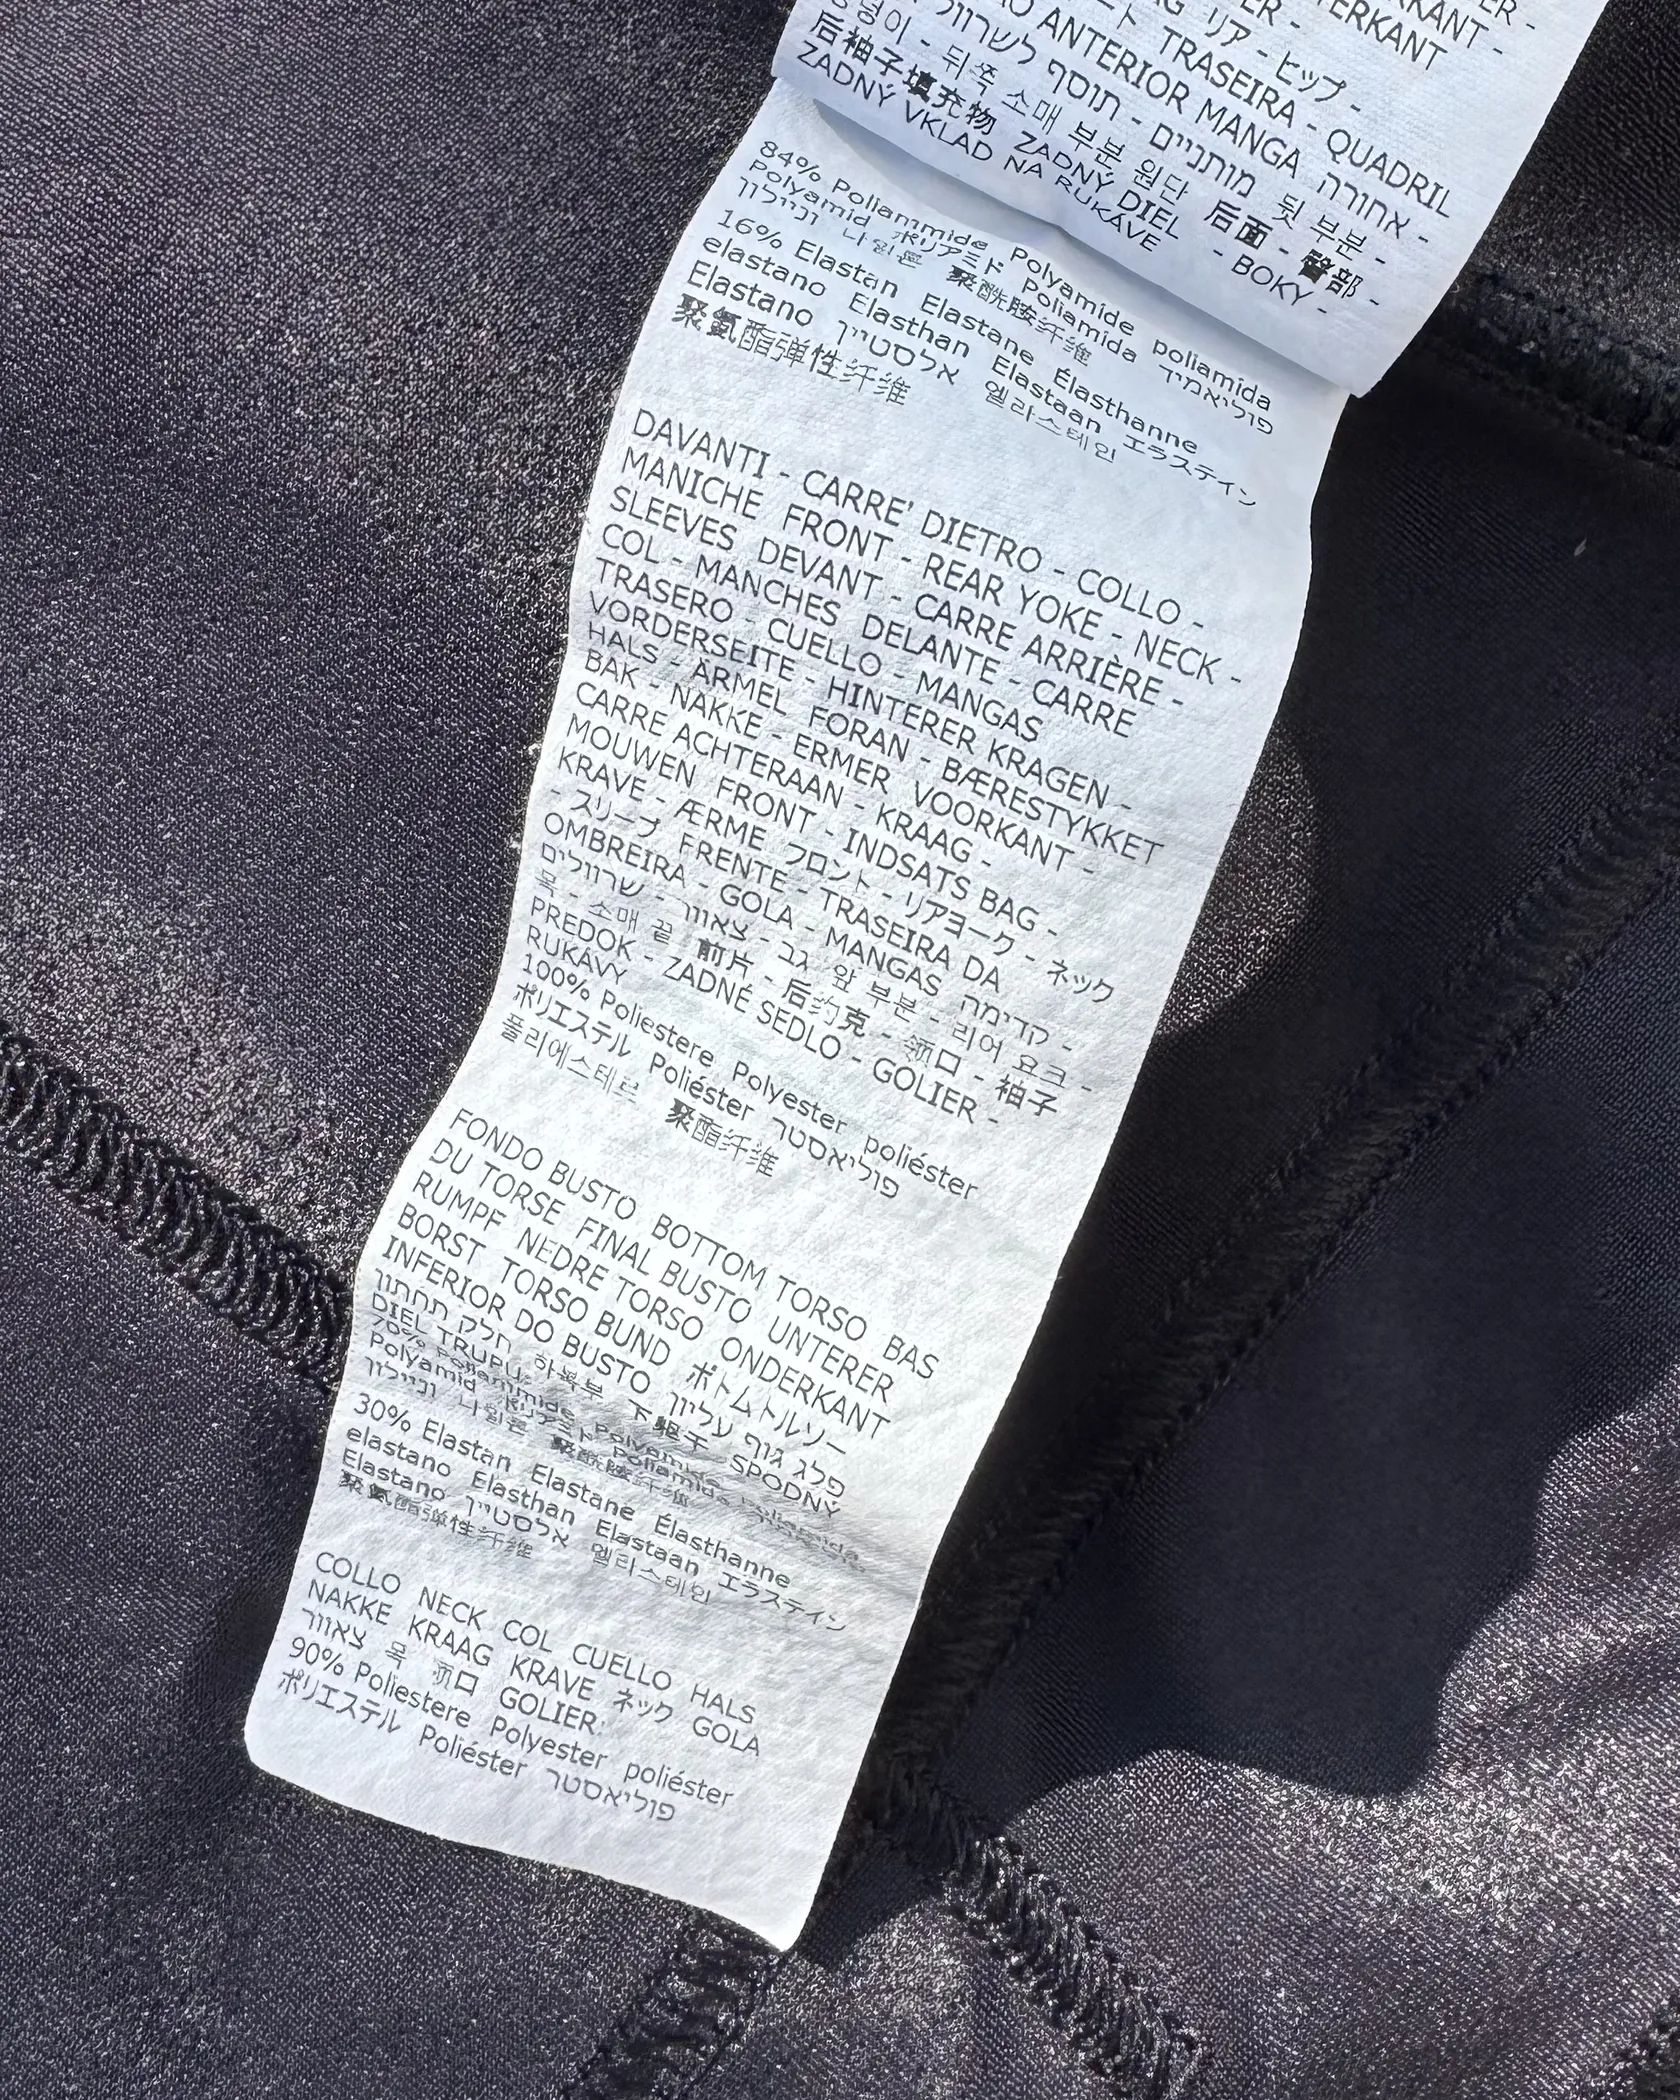 TERKANT
TRASEIRA - QUADRIL
ANTERIOR MANGA אחורה -
뒤쪽 소매 부분 원단 后面 - 臀部 -
后袖子填充物 ZADNÝ DIEL - BOKY -
ZADNÝ VKLAD NA RUKÁVE
84% Poliammide Polyamide poliamida
Polyamid ポリアミド Poliamida פוליאמיד
וניילון 나일론 聚酰胺纤维
16% Elastan Elastane Élasthanne
elastano Elasthan Elastaan エラステイン
Elastano אלסטיין 엘라스테인
聚氨酯弹性纤维
DAVANTI - CARRE' DIETRO - COLLO -
MANICHE FRONT - REAR YOKE - NECK -
SLEEVES DEVANT - CARRE ARRIÈRE -
COL - MANCHES DELANTE - CARRE
TRASERO - CUELLO - MANGAS
VORDERSEITE - HINTERER KRAGEN -
HALS - ÄRMEL FORAN - BÆRESTYKKET
BAK - NAKKE - ERMER VOORKANT -
CARRE ACHTERAAN - KRAAG -
MOUWEN FRONT - INDSATS BAG -
KRAVE - ÆRME フロント - リアヨーク - ネック
- スリーブ FRENTE - TRASEIRA DA
OMBREIRA - GOLA - MANGAS קדימה -
גב - צאוור - שרוולים 앞 부분 - 리어 요크 -
목 - 소매 끝 前片 - 后约克 - 领口 - 袖子
PREDOK - ZADNÉ SEDLO - GOLIER -
RUKÁVY
100% Poliestere Polyester poliéster
ポリエステル Poliéster פוליאסטר
폴리에스테르 聚酯纤维
FONDO BUSTO BOTTOM TORSO BAS
DU TORSE FINAL BUSTO UNTERER
RUMPF NEDRE TORSO ONDERKANT
BORST TORSO BUND ボトムトルソー
INFERIOR DO BUSTO פלג גוף עליון
חלק תחתון 하복부 下躯干 SPODNÝ
DIEL TRUPU:
70% Poliammide Polyamide poliamida
Polyamid ポリアミド Poliamida
וניילון 나일론 聚酰胺纤维
30% Elastan Elastane Élasthanne
elastano Elasthan Elastaan エラステイン
Elastano אלסטיין 엘라스테인
聚氨酯弹性纤维
COLLO NECK COL CUELLO HALS
NAKKE KRAAG KRAVE ネック GOLA
צאוור 목 领口 GOLIER:
90% Poliestere Polyester poliéster
ポリエステル Poliéster פוליאסטר